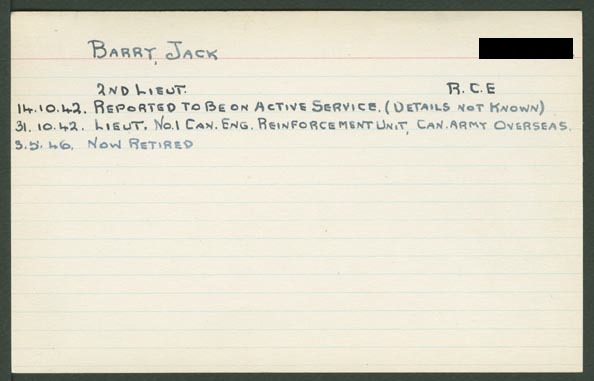 BARRY, JACK
2ND LIEUT. R.C.E
14.10.42. REPORTED TO BE ON ACTIVE SERVICE. (DETAILS NOT KNOWN)
31.10.42. LIEUT. NO.1 CAN. ENG. REINFORCEMENT UNIT, CAN. ARMY OVERSEAS.
3.5.46. NOW RETIRED